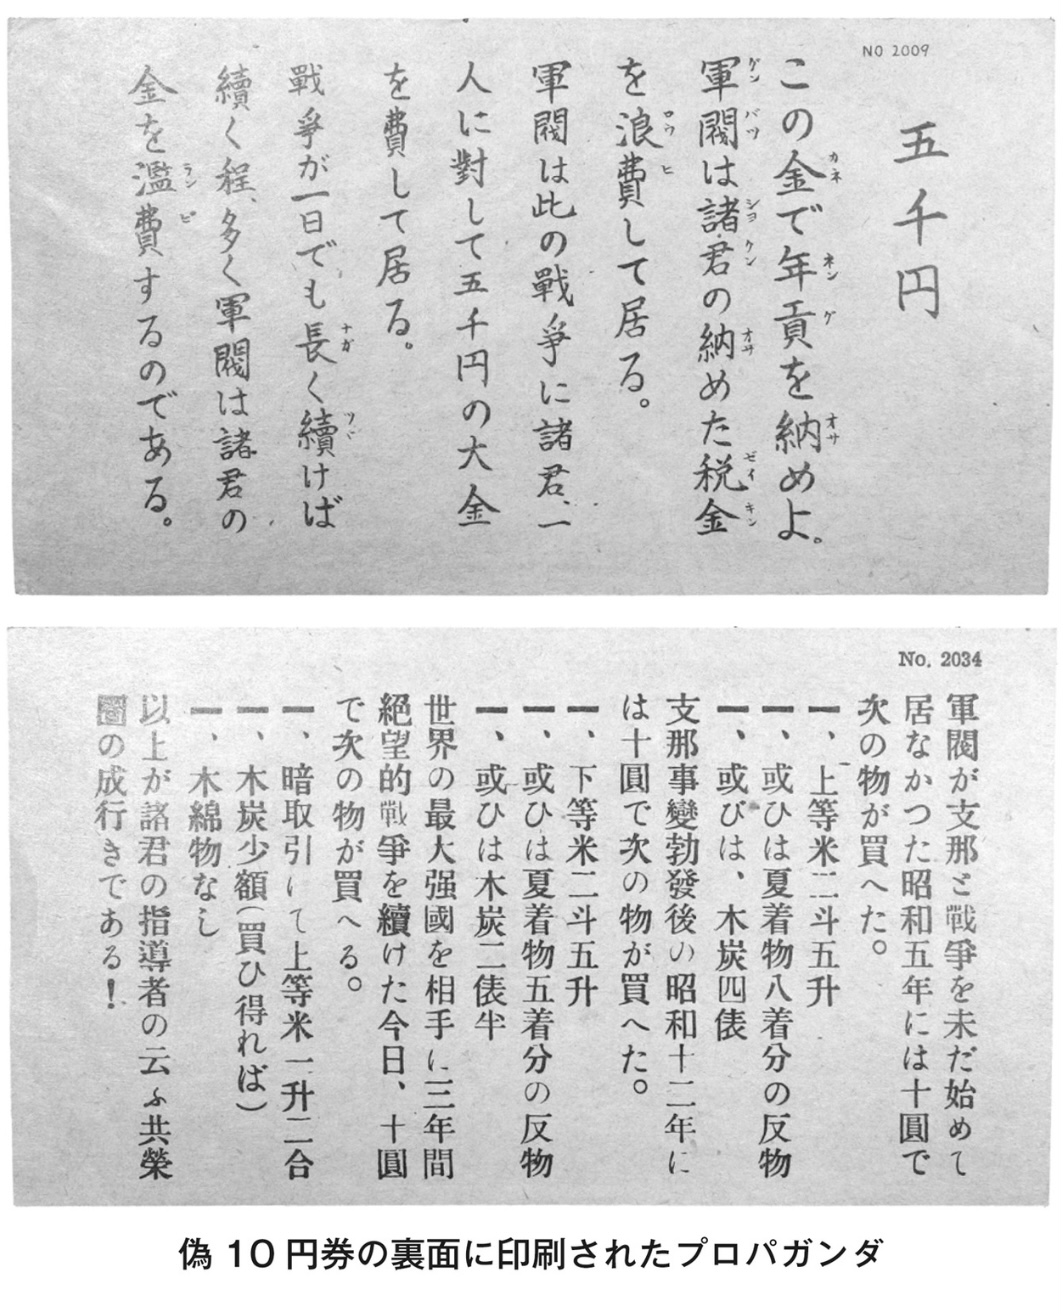 NO 2009
五千円
この金で年貢を納めよ。
軍閥は諸君の納めた税金
を浪費して居る。
軍閥は此の戰爭に諸君、一
人に對して五千円の大金
を費して居る。
戰爭が一日でも長く續けば
續く程、多く軍閥は諸君の
金を濫費するのである。
No. 2034
軍閥が支那と戰爭を未だ始めて
居なかつた昭和五年には十圓で
次の物が買へた。
一、上等米二斗五升
一、或ひは夏着物八着分の反物
一、或びは、木炭四俵
支那事變勃發後の昭和十二年に
は十圓で次の物が買へた。
一、下等米二斗五升
一、或ひは夏着物五着分の反物
一、或ひは木炭二俵半
世界の最大强國を相手に三年間
絕望的戰爭を續けた今日、十圓
で次の物が買へる。
一、暗取引にて上等米一升二合
一、木炭少額(買ひ得れば)
一、木綿物なし
以上が諸君の指導者の云ふ共榮
圈の成行きである!
偽10円券の裏面に印刷されたプロパガンダ